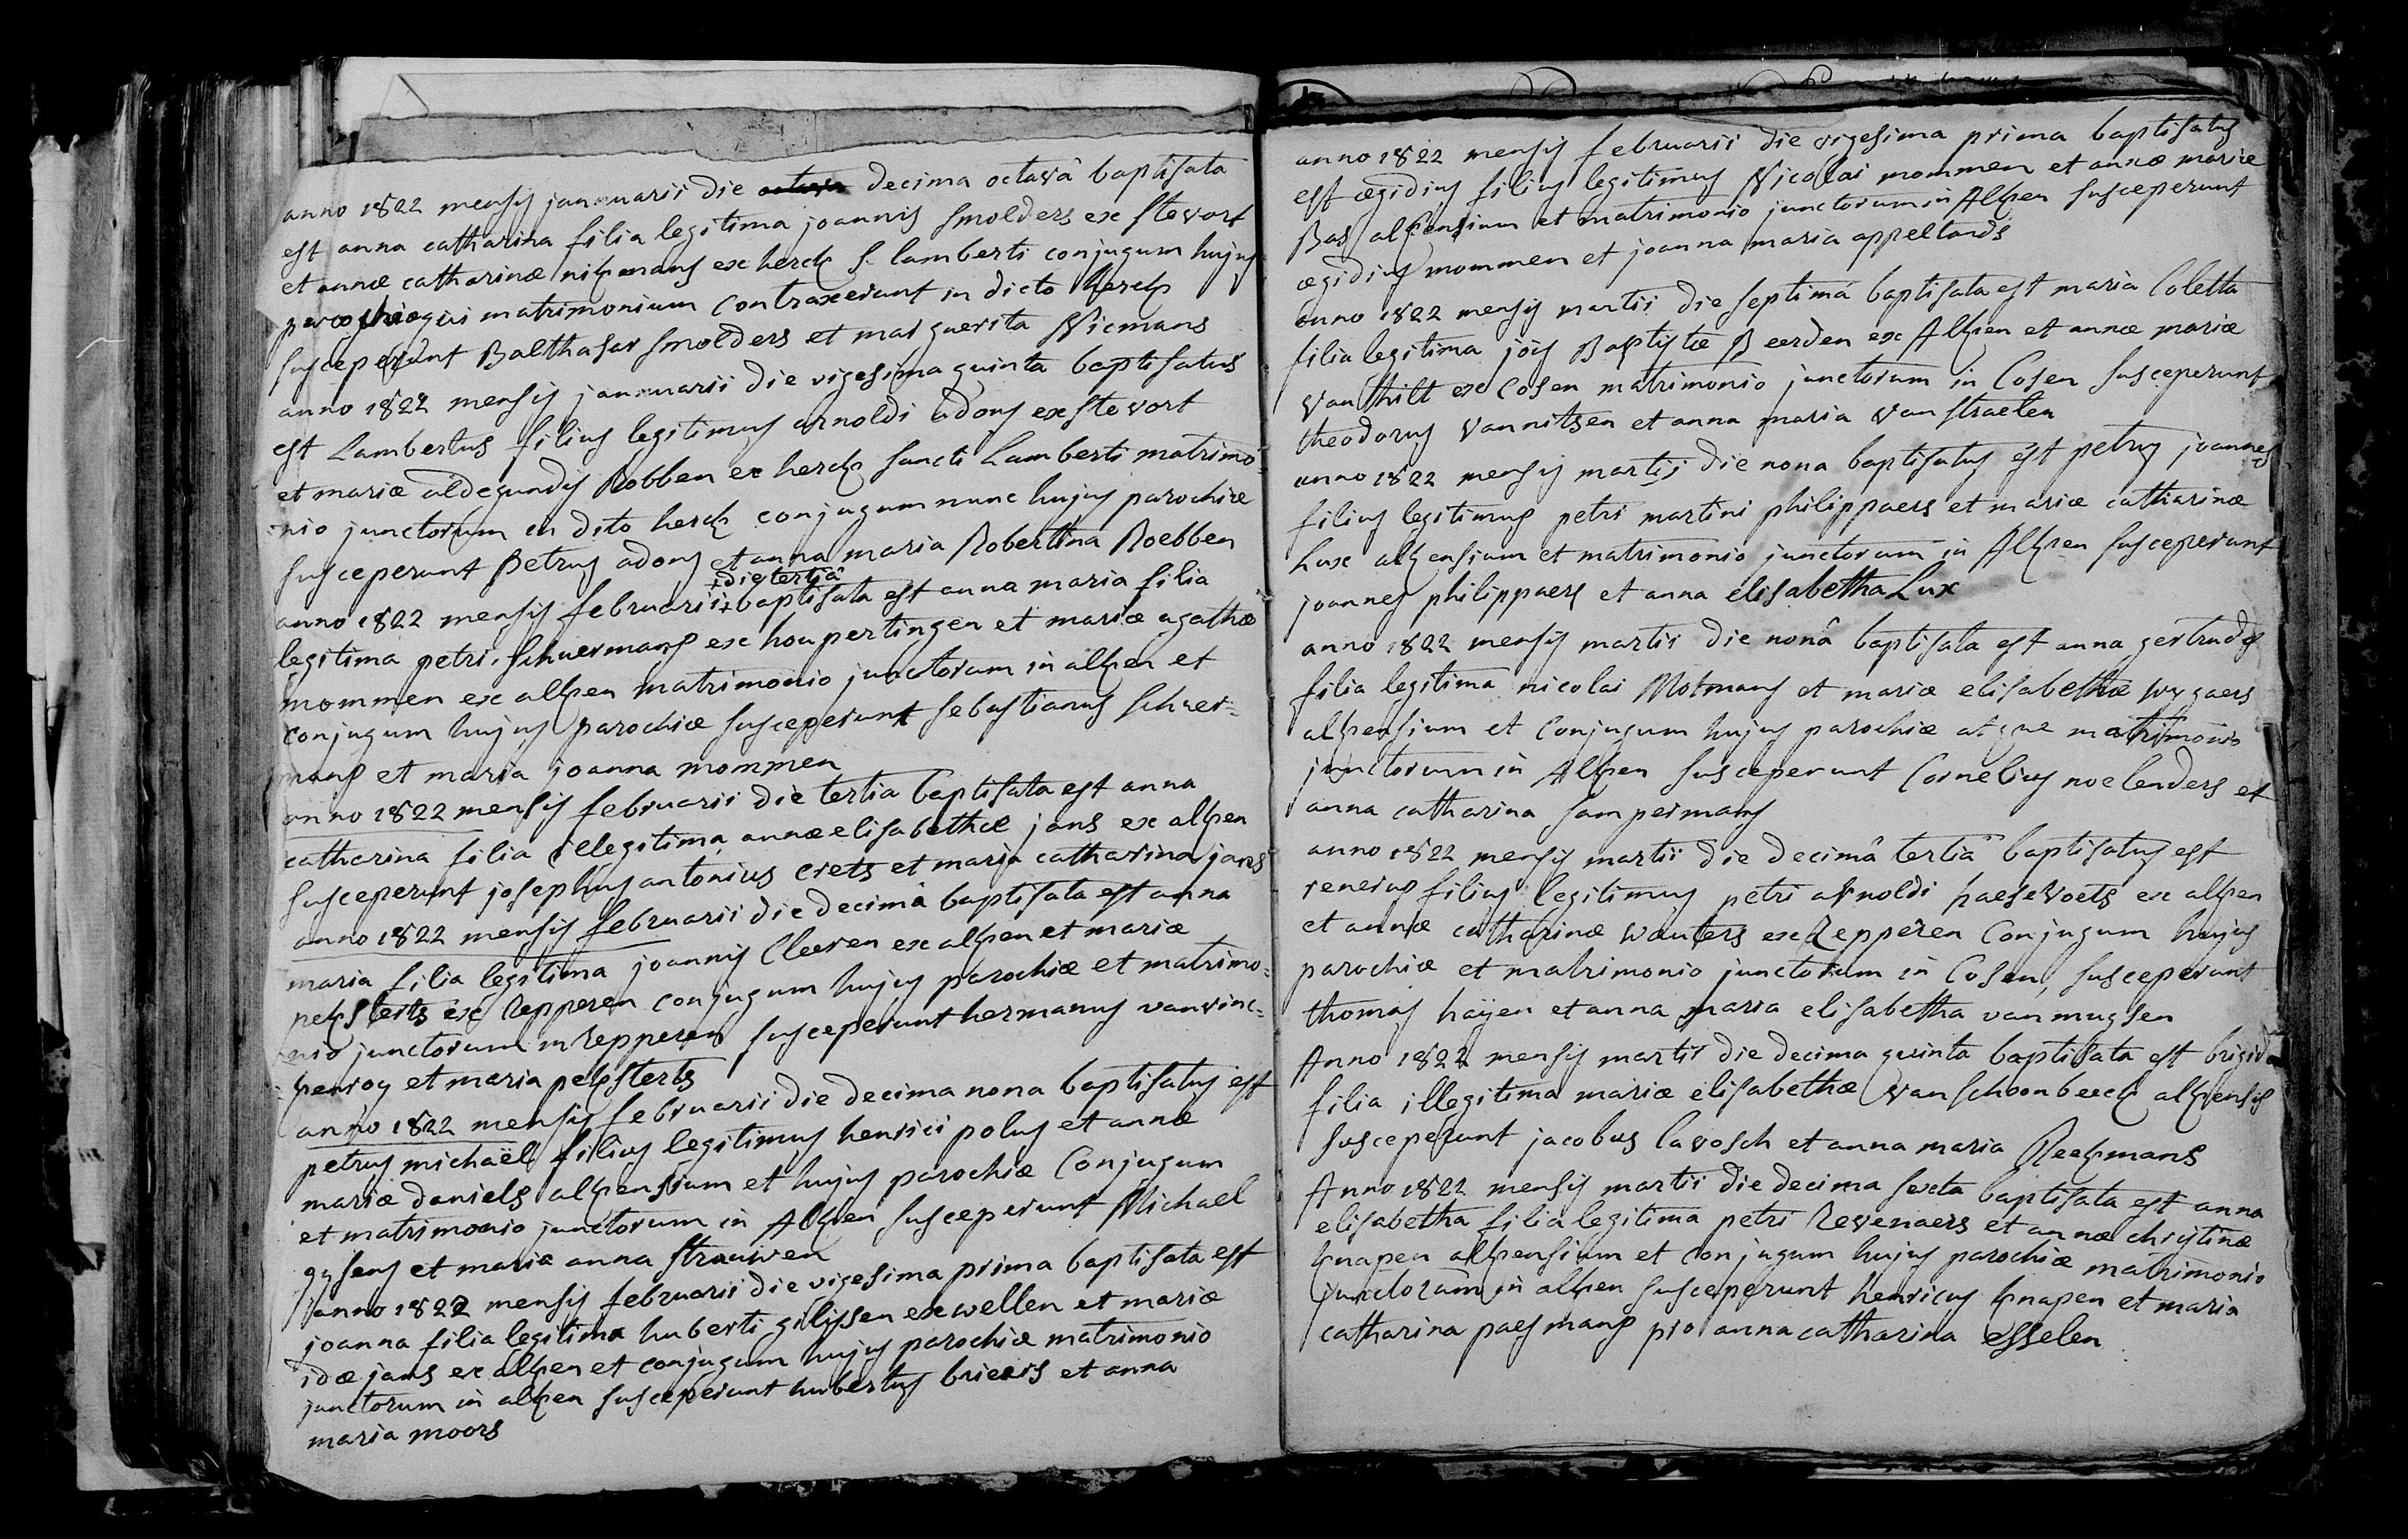 anno 1822 mensis januuarii die octava decima octavâ baptisata
est anna catharina filia legitima joannis smolders ex stevort
et annæ catharinæ nikmans ex herck S. lamberti conjugum hujus
parochiæ qui matrimonium contraxerunt in dicto herck
susceperunt Balthasar smolders et marguerita Nicmans
anno 1822 mensis januuarii die vigesima quinta baptisatus
est Lambertus filius legitimus arnoldi adons ex stevort
et mariæ aldegundis Robben ex herck sancti Lamberti matrimo=
=nio junctorum in dito herck conjugum nunc hujus parochiæ
susceperunt Petrus adons et anna maria Robertina Roebben
die tertiâ
anno 1822 mensis februarii + baptisata est anna maria filia
legitima petri schuermans ex houpertingen et mariæ agathæ
mommen ex alken matrimonio junctorum in alken et
conjugum hujus parochiæ susceperunt sebastianus schuer=
mans et maria joanna mommen
anno 1822 mensis februarii die tertia baptisata est anna
catharina filia illegitima annæ elisabethæ jans ex alken
susceperunt josephus antonius crets et maria catharina jans
anno 1822 mensis februarii die decimâ baptisata est anna
maria filia legitima joannis Cleeren ex alken et mariæ
peksterts ex Repperen conjugum hujus parochiæ et matrimo=
nio junctorum in repperen susceperunt hermanus vanvinc=
kenroy et maria peksterts
anno 1822 mensis februarii die decima nona baptisatus est
petrus michaël filius legitimus henrici polus et annæ
mariæ daniels alkensium et hujus parochiæ Conjugum
et matrimonio junctorum in Alken susceperunt Michael
gysens et maria anna strauwen
anno 1822 mensis februarii die vigesima prima baptisata est
joanna filia legitima huberti gilissen ex wellen et mariæ
idæ jans ex alken et conjugum hujus parochiæ matrimonio
junctorum in alken susceperunt hubertus briers et anna
maria moors
anno 1822 mensis februarii die vigesima prima baptisatus
est ægidius filius legitimus Nicolai mommen et annæ mariæ
Bas alkensium et matrimonio junctorum in Alken susceperunt
ægidius mommen et joanna maria appeltands
anno 1822 mensis martii die septimá baptisata est maria Coletta
filia legitima jois Baptistæ Beerden ex Alken et annæ mariæ
Van thilt ex Cosen matrimonio junctorum in Cosen susceperunt
theodorus Vannitsen et anna maria Van straeten
anno 1822 mensis martii die nona baptisatus est petrus joannes
filius legitimus petri martini philippaers et mariæ catharinæ
Lux alkensium et matrimonio junctorum in Alken susceperunt
joannes philippaers et anna elisabetha Lux
anno 1822 mensis martii die nonâ baptisata est anna gertrudis
filia legitima nicolai Motmans et mariæ elisabethæ wygaers
alkensium et Conjugum hujus parochiæ atque matrimonio
junctorum in Alken susceperunt Cornelius noelenders et
anna catharina sampermans
anno 1822 mensis martii die decimâ tertiâ baptisatus est
renerus filius legitimus petri arnoldi haesevoets ex alken
et annæ catharinæ wauters ex Repperen Conjugum hujus
parochiæ et matrimonio junctorum in Cosen, susceperunt
thomas hayen et anna maria elisabetha van mugsen
Anno 1822 mensis martii die decima quinta baptisata est brigida
filia illegitima mariæ elisabethæ van schoonbeeck alkensis
susceperunt jacobus lavosch et anna maria Reekmans
Anno 1822 mensis martii die decima sexta baptisata est anna
elisabetha filia legitima petri Revenaers et annæ christinæ
knapen alkensium et conjugum hujus parochiæ matrimonio
junctorum in alken susceperunt henricus knapen et maria
catharina paesmans pro anna catharina esselen